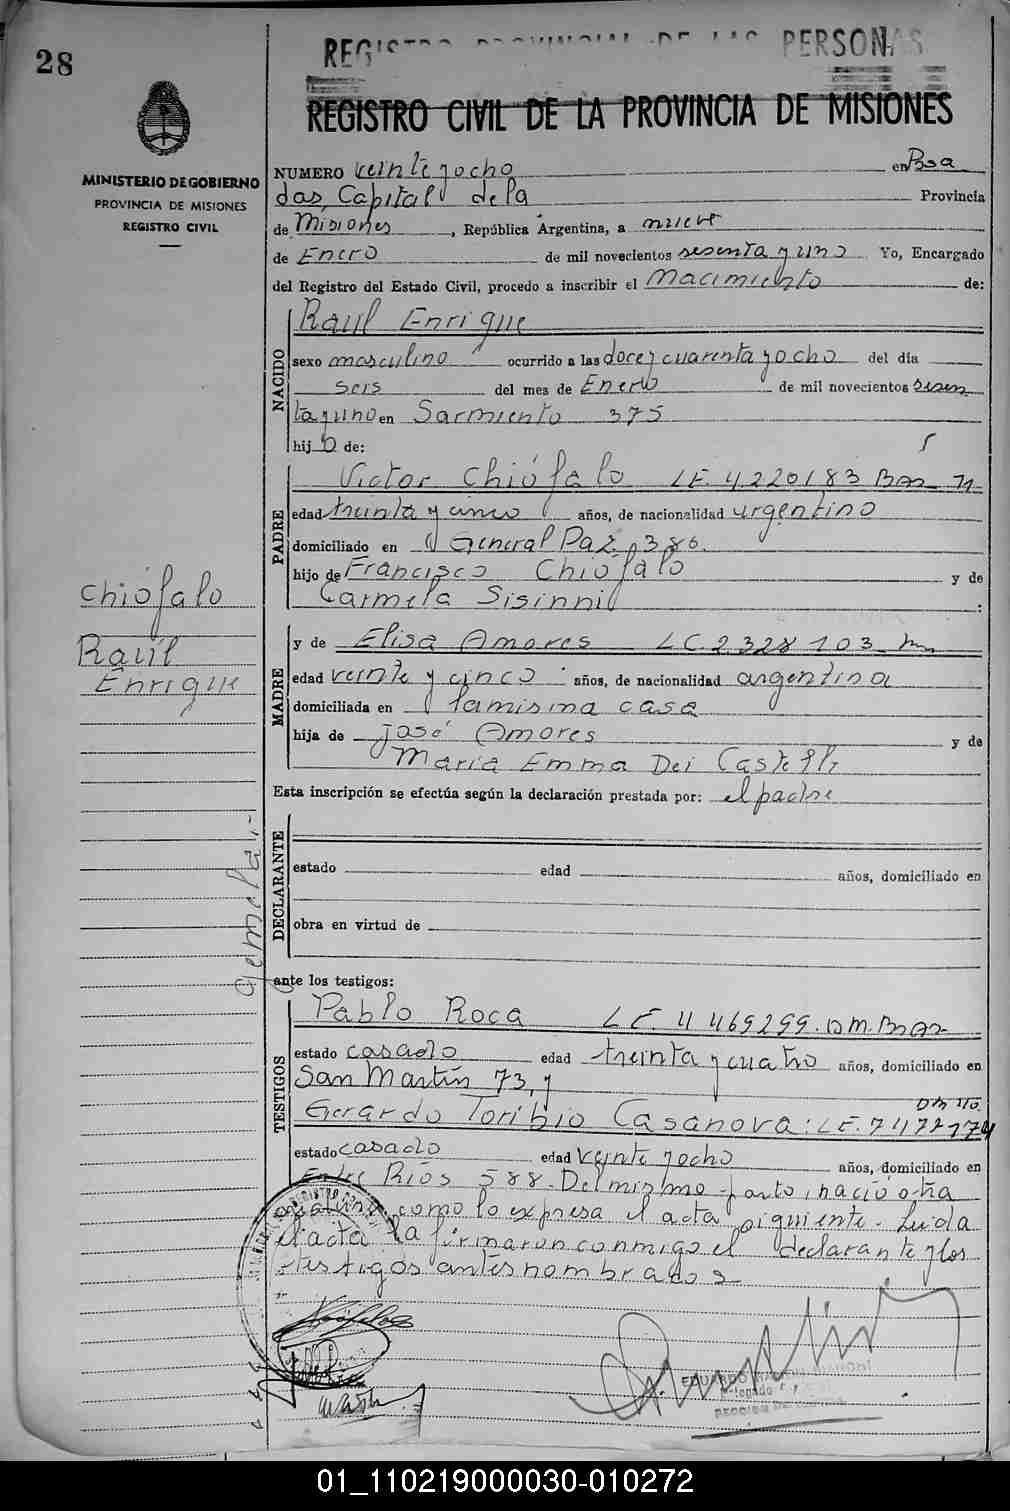 28
REGISTRO PROVINCIAL DE LAS PERSONAS
REGISTRO CIVIL DE LA PROVINCIA DE MISIONES
MINISTERIO DE GOBIERNO
PROVINCIA DE MISIONES
REGISTRO CIVIL
NUMERO veinte y ocho en Posa
das, Capital de la Provincia
de Misiones, República Argentina, a nueve
de Enero de mil novecientos sesenta y uno Yo, Encargado
del Registro del Estado Civil, procedo a inscribir el Nacimiento de:
NACIDO
Raúl Enrique
sexo masculino ocurrido a las doce y cuarenta y ocho del día
seis del mes de Enero de mil novecientos sesen
ta y uno en Sarmiento 375
hijo de:
PADRE
Victor Chiófalo LE. 4220183
edad treinta y cinco años, de nacionalidad argentino
domiciliado en General Paz 386.
hijo de Francisco Chiófalo y de
Carmela Sisinni :
MADRE
y de Elisa Amores LC. 2.328.103
edad veinte y cinco años, de nacionalidad argentina
domiciliada en la misma casa
hija de José Amores y de
María Emma Dei Castelli
Esta inscripción se efectúa según la declaración prestada por: el padre
DECLARANTE
estado edad años, domiciliado en
obra en virtud de
ante los testigos:
TESTIGOS
Pablo Roca LE. 4469299. DM. BsAs
estado casado edad treinta y cuatro años, domiciliado en
San Martín 73, y
Gerardo Toribio Casanova: LE. 7472174
estado casado edad veinte y ocho años, domiciliado en
Entre Ríos 588. Del mismo parto, nació otra
como lo expresa el acta siguiente. Leida
el acta la firmaron conmigo el declarante y los
testigos antes nombrados
Chiófalo
Raúl
Enrique
Gemela.-
EDUARDO
01_110219000030-010272